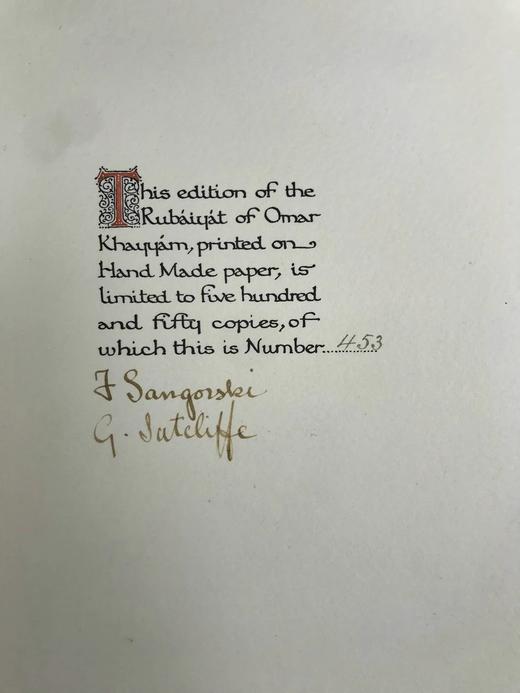 This edition of the
Rubáiyát of Omar
Khayyám, printed on
Hand Made paper, is
limited to five hundred
and fifty copies, of
which this is Number 453
F Sangorski
G. Sutcliffe